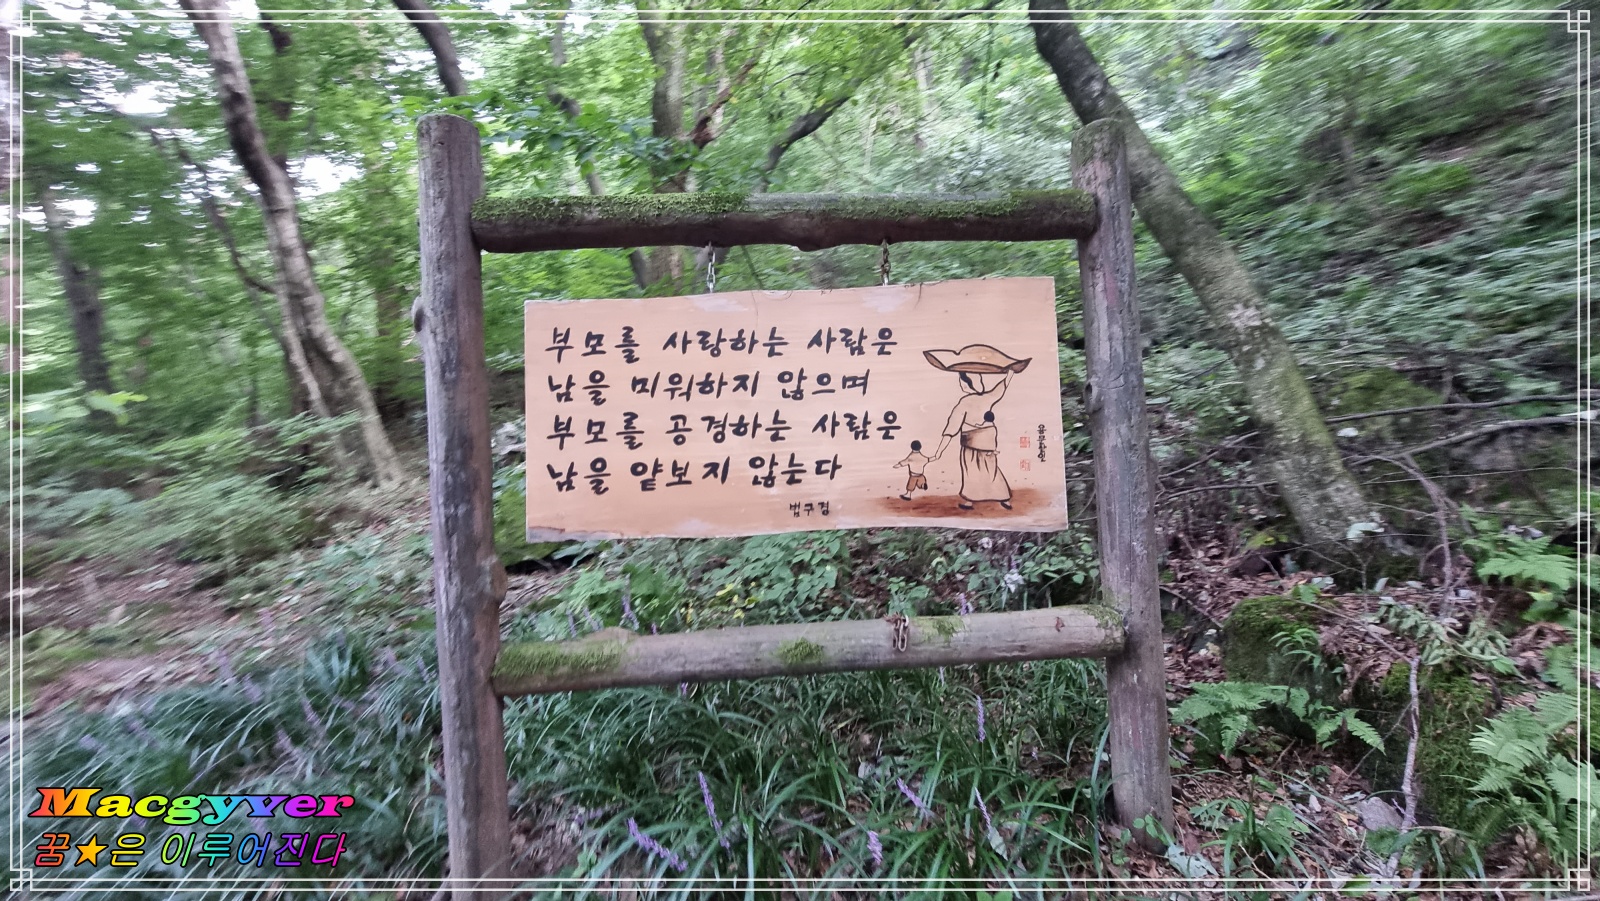 부모를 사랑하는 사람은
남을 미워하지 않으며
부모를 공경하는 사람은
남을 얕보지 않는다
범구경
Macgyver
꿈★은 이루어진다